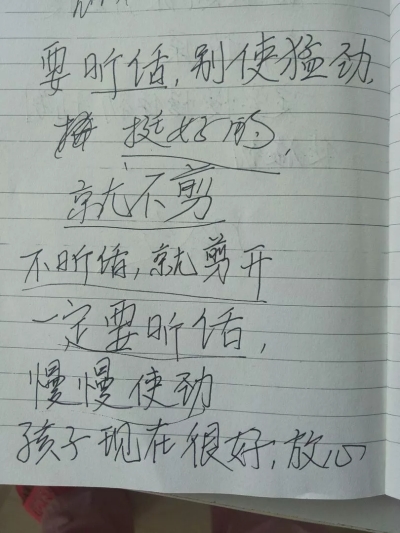 要听话，别使猛劲，
挺好的，
就不剪
不听话，就剪开
一定要听话，
慢慢使劲
孩子现在很好，放心